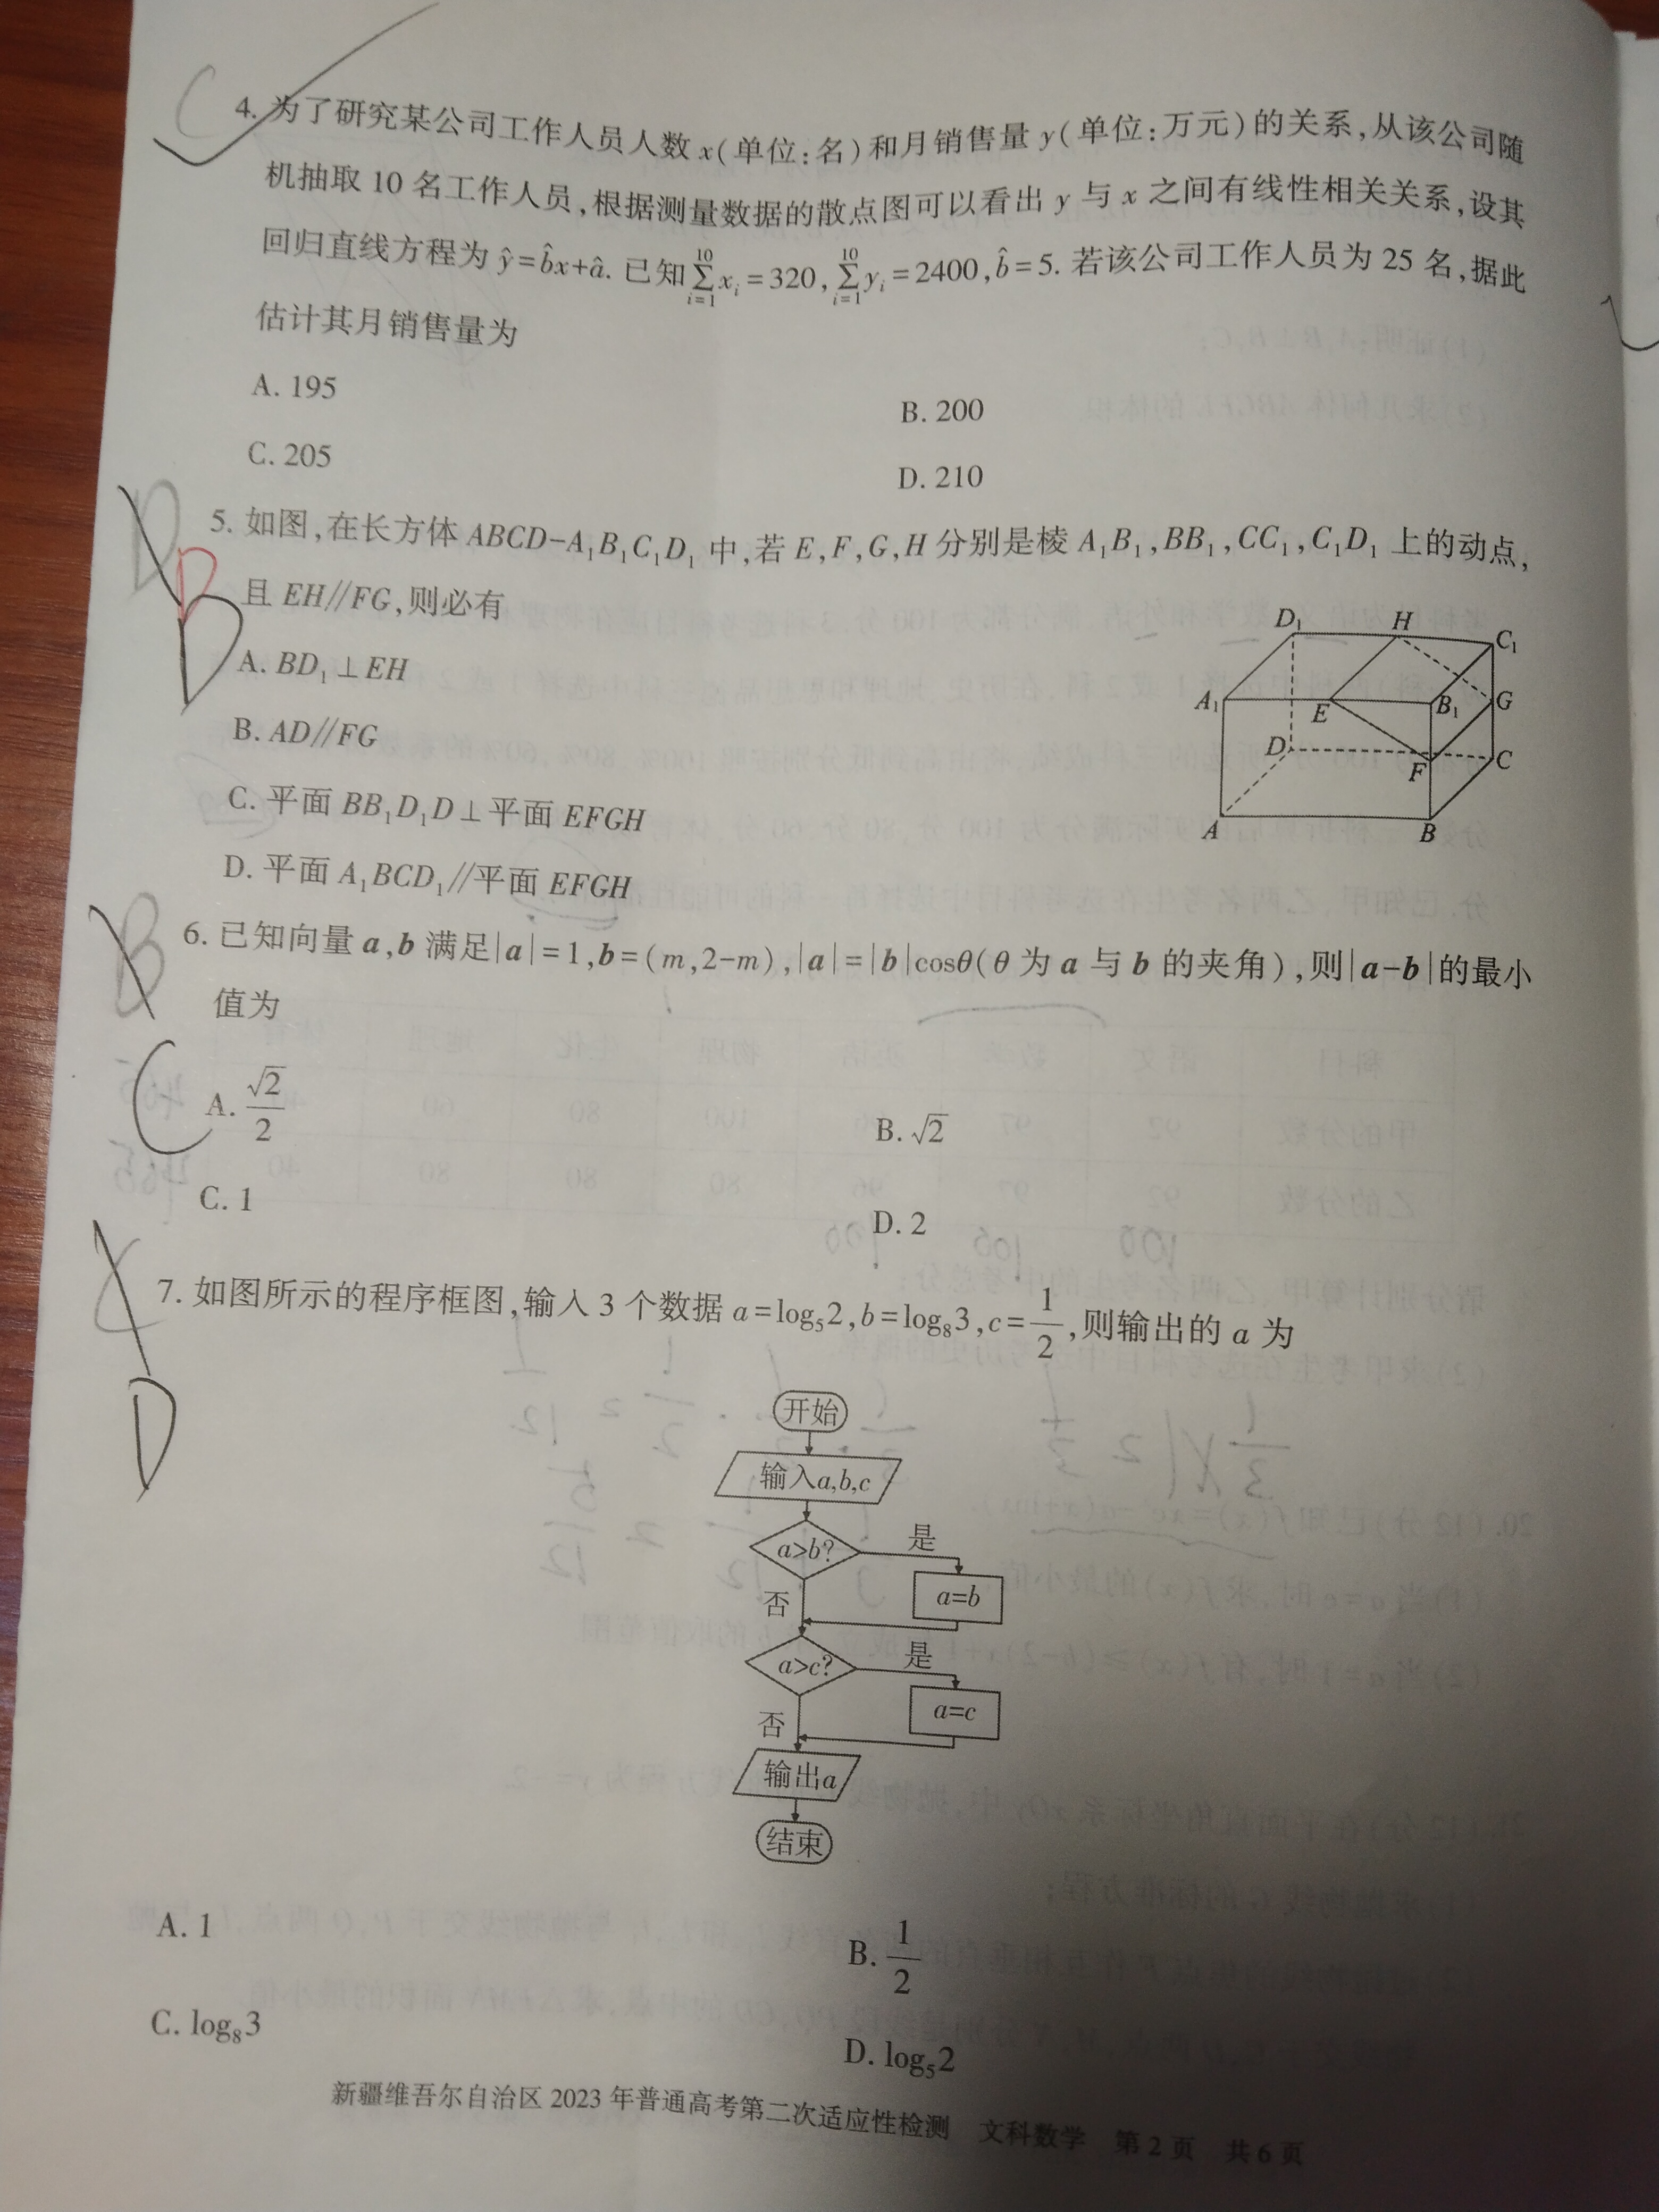 C
4. 为了研究某公司工作人员人数 x(单位:名)和月销售量 y(单位:万元)的关系,从该公司随
机抽取 10 名工作人员,根据测量数据的散点图可以看出 y 与 x 之间有线性相关关系,设其
回归直线方程为 ŷ=b̂x+â. 已知∑_{i=1}^{10} xᵢ=320,∑_{i=1}^{10} yᵢ=2400,b̂=5. 若该公司工作人员为 25 名,据此
估计其月销售量为
A. 195
B. 200
C. 205
D. 210
D
B
5. 如图,在长方体 ABCD-A₁B₁C₁D₁ 中,若 E,F,G,H 分别是棱 A₁B₁,BB₁,CC₁,C₁D₁ 上的动点,
且 EH∥FG,则必有
A. BD₁⊥EH
B. AD∥FG
C. 平面 BB₁D₁D⊥平面 EFGH
D. 平面 A₁BCD₁∥平面 EFGH
D₁ H C₁
A₁ E B₁ G
D F C
A B
B
6. 已知向量 a,b 满足|a|=1,b=(m,2-m),|a|=|b|cosθ(θ 为 a 与 b 的夹角),则|a-b|的最小
值为
C
A. √2/2
B. √2
C. 1
D. 2
7. 如图所示的程序框图,输入 3 个数据 a=log₅2,b=log₈3,c=1/2,则输出的 a 为
D
开始
输入a,b,c
a>b?
是
a=b
否
a>c?
是
a=c
否
输出a
结束
A. 1
B. 1/2
C. log₈3
D. log₅2
新疆维吾尔自治区 2023 年普通高考第二次适应性检测 文科数学 第 2 页 共 6 页